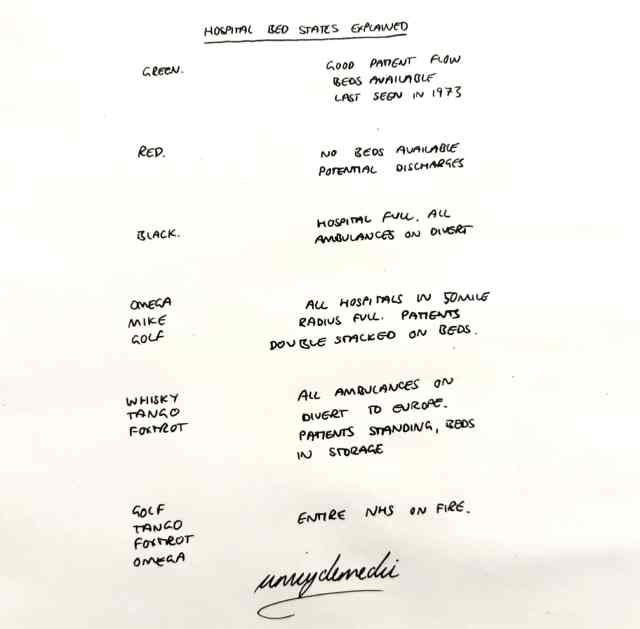 HOSPITAL BED STATES EXPLAINED
GREEN. GOOD PATIENT FLOW
BEDS AVAILABLE
LAST SEEN IN 1973
RED. NO BEDS AVAILABLE
POTENTIAL DISCHARGES
BLACK. HOSPITAL FULL. ALL
AMBULANCES ON DIVERT
OMEGA ALL HOSPITALS IN 50MILE
MIKE RADIUS FULL. PATIENTS
GOLF DOUBLE STACKED ON BEDS.
WHISKY ALL AMBULANCES ON
TANGO DIVERT TO EUROPE.
FOXTROT PATIENTS STANDING, BEDS
IN STORAGE
GOLF ENTIRE NHS ON FIRE.
TANGO
FOXTROT
OMEGA